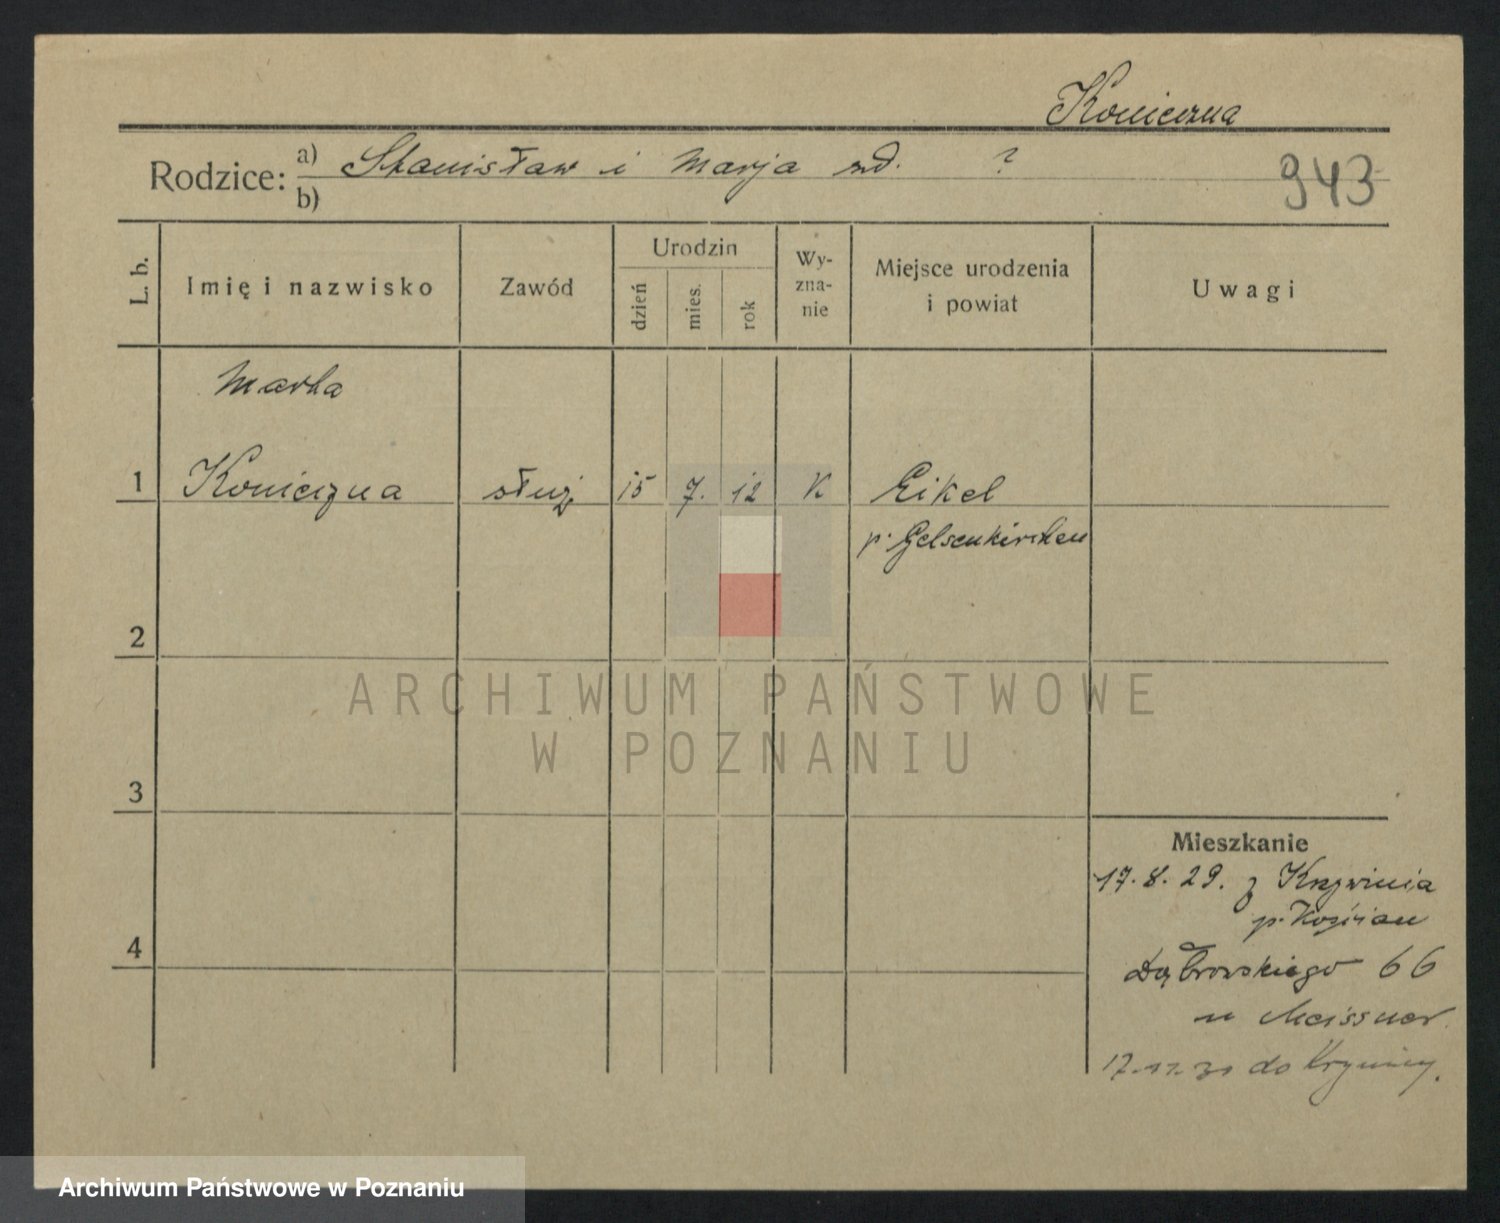 Konieczna
Rodzice: a) Stanisław i Marja zd. ?
b)
943
L. b.
Imię i nazwisko
Zawód
Urodzin
dzień
mies.
rok
Wy-
zna-
nie
Miejsce urodzenia
i powiat
Uwagi
Marta
1 Konieczna służ 15 7. 12 K Eikel
p. Gelsenkirchen
2
3
4
Mieszkanie
17.8.29. z Krzywinia
p. Kościan
Dąbrowskiego 66
u Meissner.
do
ARCHIWUM PAŃSTWOWE
W POZNANIU
Archiwum Państwowe w Poznaniu